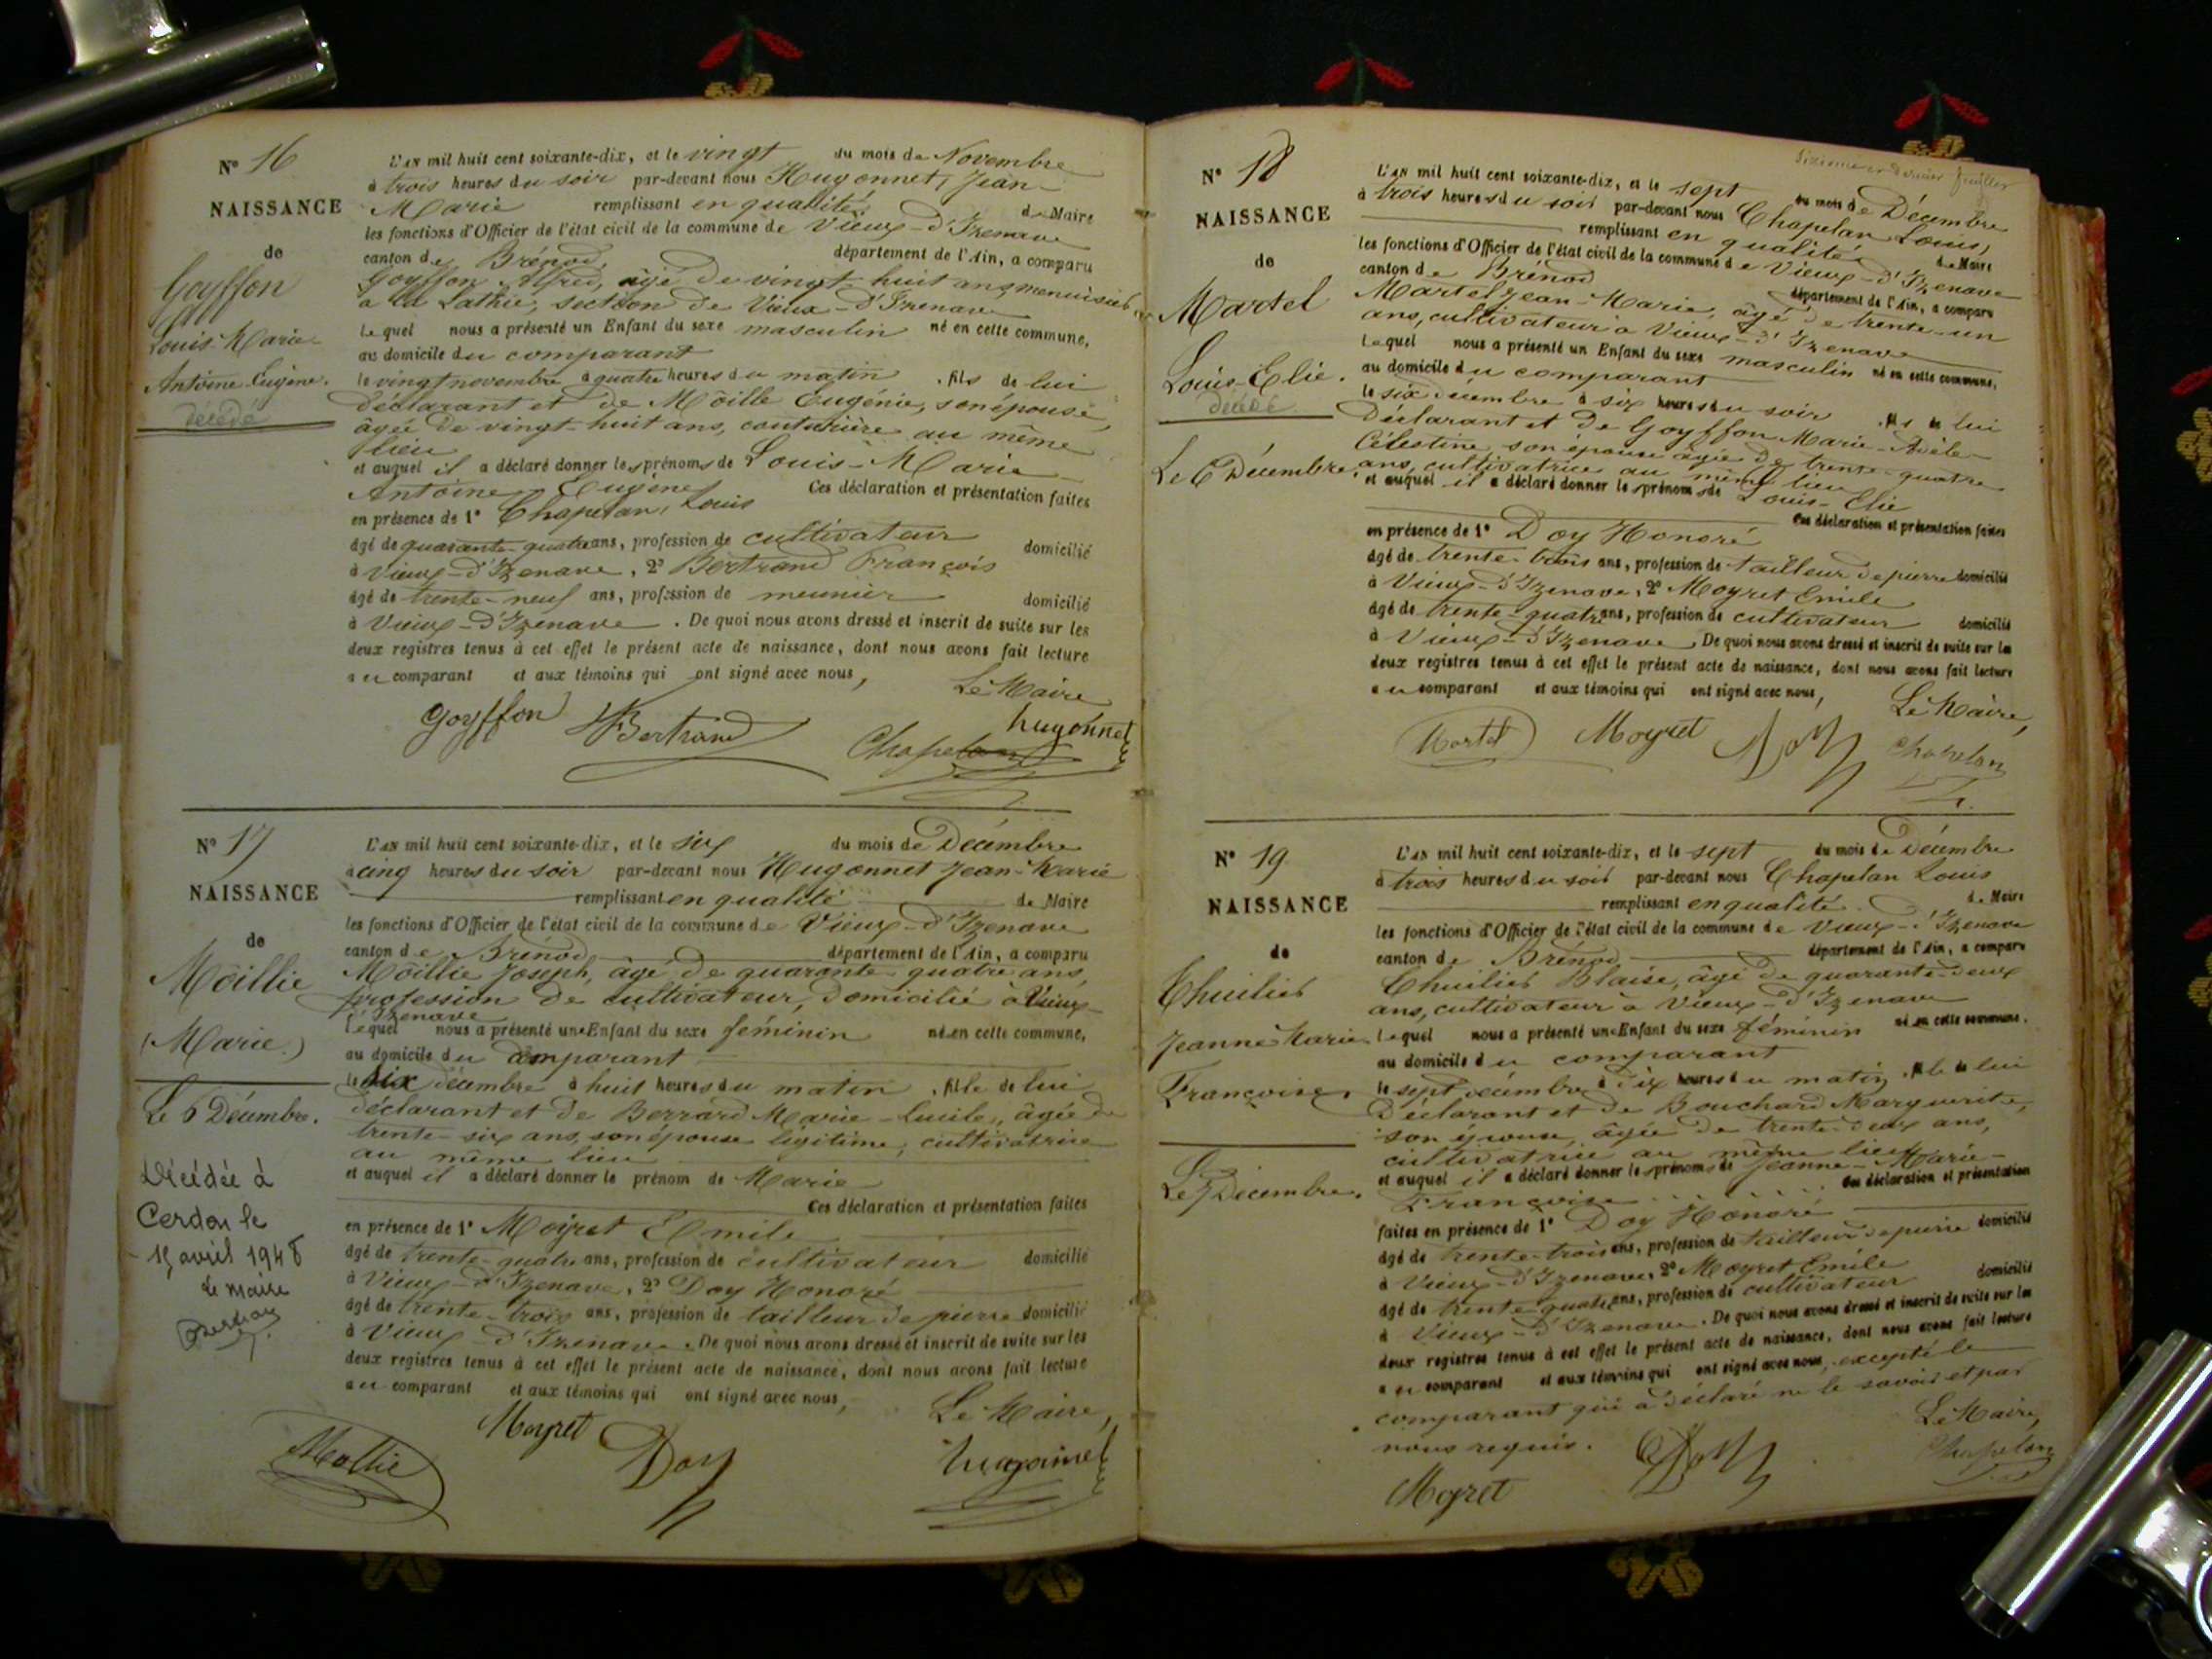 N° 16
NAISSANCE
de
Goyffon
Louis-Marie-
Antoine-Eugène.
décédé
L'an mil huit cent soixante-dix, et le vingt du mois de Novembre
à trois heures du soir par-devant nous Hugonnet, Jean-
Marie remplissant en qualité de Maire
les fonctions d'Officier de l'état civil de la commune de Vieux-d'Izenave
canton de Brénod, département de l'Ain, a comparu
Goyffon Alfred, âgé de vingt-huit ans, menuisier
à la Lathie, section de Vieux-d'Izenave
lequel nous a présenté un Enfant du sexe masculin né en cette commune,
au domicile du comparant
le vingt novembre à quatre heures du matin, fils de lui
déclarant et de Môille Eugénie, son épouse,
âgée de vingt-huit ans, couturière au même
lieu
et auquel il a déclaré donner les prénoms de Louis-Marie
Antoine-Eugène Ces déclaration et présentation faites
en présence de 1° Chapelan, Louis
âgé de quarante-quatre ans, profession de cultivateur domicilié
à Vieux-d'Izenave, 2° Bertrand François
âgé de trente-neuf ans, profession de meunier domicilié
à Vieux-d'Izenave. De quoi nous avons dressé et inscrit de suite sur les
deux registres tenus à cet effet le présent acte de naissance, dont nous avons fait lecture
au comparant et aux témoins qui ont signé avec nous,
Le Maire
Goyffon Bertrand Chapelan hugonnet
N° 17
NAISSANCE
de
Môillie
(Marie)
Le 6 Décembre.
Décédée à
Cerdon le
15 avril 1948
Le maire
L'an mil huit cent soixante-dix, et le six du mois de Décembre
à cinq heures du soir par-devant nous Hugonnet Jean-Marie
remplissant en qualité de Maire
les fonctions d'Officier de l'état civil de la commune de Vieux-d'Izenave
canton de Brénod département de l'Ain, a comparu
Môillie Joseph, âgé de quarante-quatre ans,
profession de cultivateur, domicilié à Vieux-
d'Izenave
lequel nous a présenté une Enfant du sexe féminin née en cette commune,
au domicile du comparant
le six décembre à huit heures du matin, fille de lui
déclarant et de Berrard Marie-Lucile, âgée de
trente-six ans, son épouse légitime, cultivatrice
au même lieu
et auquel il a déclaré donner le prénom de Marie
Ces déclaration et présentation faites
en présence de 1° Moyret Emile
âgé de trente-quatre ans, profession de cultivateur domicilié
à Vieux-d'Izenave, 2° Doy Honoré
âgé de trente-trois ans, profession de tailleur de pierre domicilié
à Vieux-d'Izenave. De quoi nous avons dressé et inscrit de suite sur les
deux registres tenus à cet effet le présent acte de naissance, dont nous avons fait lecture
au comparant et aux témoins qui ont signé avec nous,
Le Maire,
Mollie Moyret Doy hugonnet
Sixième et dernier feuillet
N° 18
NAISSANCE
de
Martel
Louis-Elie.
décédé
Le 6 Décembre.
L'an mil huit cent soixante-dix, et le sept du mois de Décembre
à trois heures du soir par-devant nous Chapelan Louis,
remplissant en qualité de Maire
les fonctions d'Officier de l'état civil de la commune de Vieux-d'Izenave
canton de Brénod département de l'Ain, a comparu
Martel Jean-Marie, âgé de trente-un
ans, cultivateur à Vieux-d'Izenave
lequel nous a présenté un Enfant du sexe masculin né en cette commune,
au domicile du comparant
le six décembre à six heures du soir, fils de lui
déclarant et de Goyffon Marie-Adèle-
Célestine son épouse âgée de trente-quatre
ans, cultivatrice au même lieu
et auquel il a déclaré donner les prénoms de Louis-Elie
Ces déclaration et présentation faites
en présence de 1° Doy Honoré
âgé de trente-trois ans, profession de tailleur de pierre domicilié
à Vieux-d'Izenave, 2° Moyret Emile
âgé de trente-quatre ans, profession de cultivateur domicilié
à Vieux-d'Izenave. De quoi nous avons dressé et inscrit de suite sur les
deux registres tenus à cet effet le présent acte de naissance, dont nous avons fait lecture
au comparant et aux témoins qui ont signé avec nous,
Le Maire,
Martel Moyret Doy Chapelan
N° 19
NAISSANCE
de
Thuilier
Jeanne Marie
Françoise.
Le 7 Décembre.
L'an mil huit cent soixante-dix, et le sept du mois de Décembre
à trois heures du soir par-devant nous Chapelan Louis
remplissant en qualité de Maire
les fonctions d'Officier de l'état civil de la commune de Vieux-d'Izenave
canton de Brénod département de l'Ain, a comparu
Thuilier Blaise, âgé de quarante-deux
ans, cultivateur à Vieux-d'Izenave
lequel nous a présenté une Enfant du sexe féminin né en cette commune,
au domicile du comparant
le sept décembre à dix heures du matin, fille de lui
Déclarant et de Bouchard Marguerite,
son épouse, âgée de trente-deux ans,
cultivatrice au même lieu
et auquel il a déclaré donner les prénoms de Jeanne-Marie-
Françoise Ces déclaration et présentation
faites en présence de 1° Doy Honoré
âgé de trente-trois ans, profession de tailleur de pierre domicilié
à Vieux-d'Izenave, 2° Moyret Emile
âgé de trente-quatre ans, profession de cultivateur domicilié
à Vieux-d'Izenave. De quoi nous avons dressé et inscrit de suite sur les
deux registres tenus à cet effet le présent acte de naissance, dont nous avons fait lecture
au comparant et aux témoins qui ont signé avec nous, excepté le
comparant qui a déclaré ne le savoir et par
nous requis.
Le Maire,
Moyret Doy Chapelan